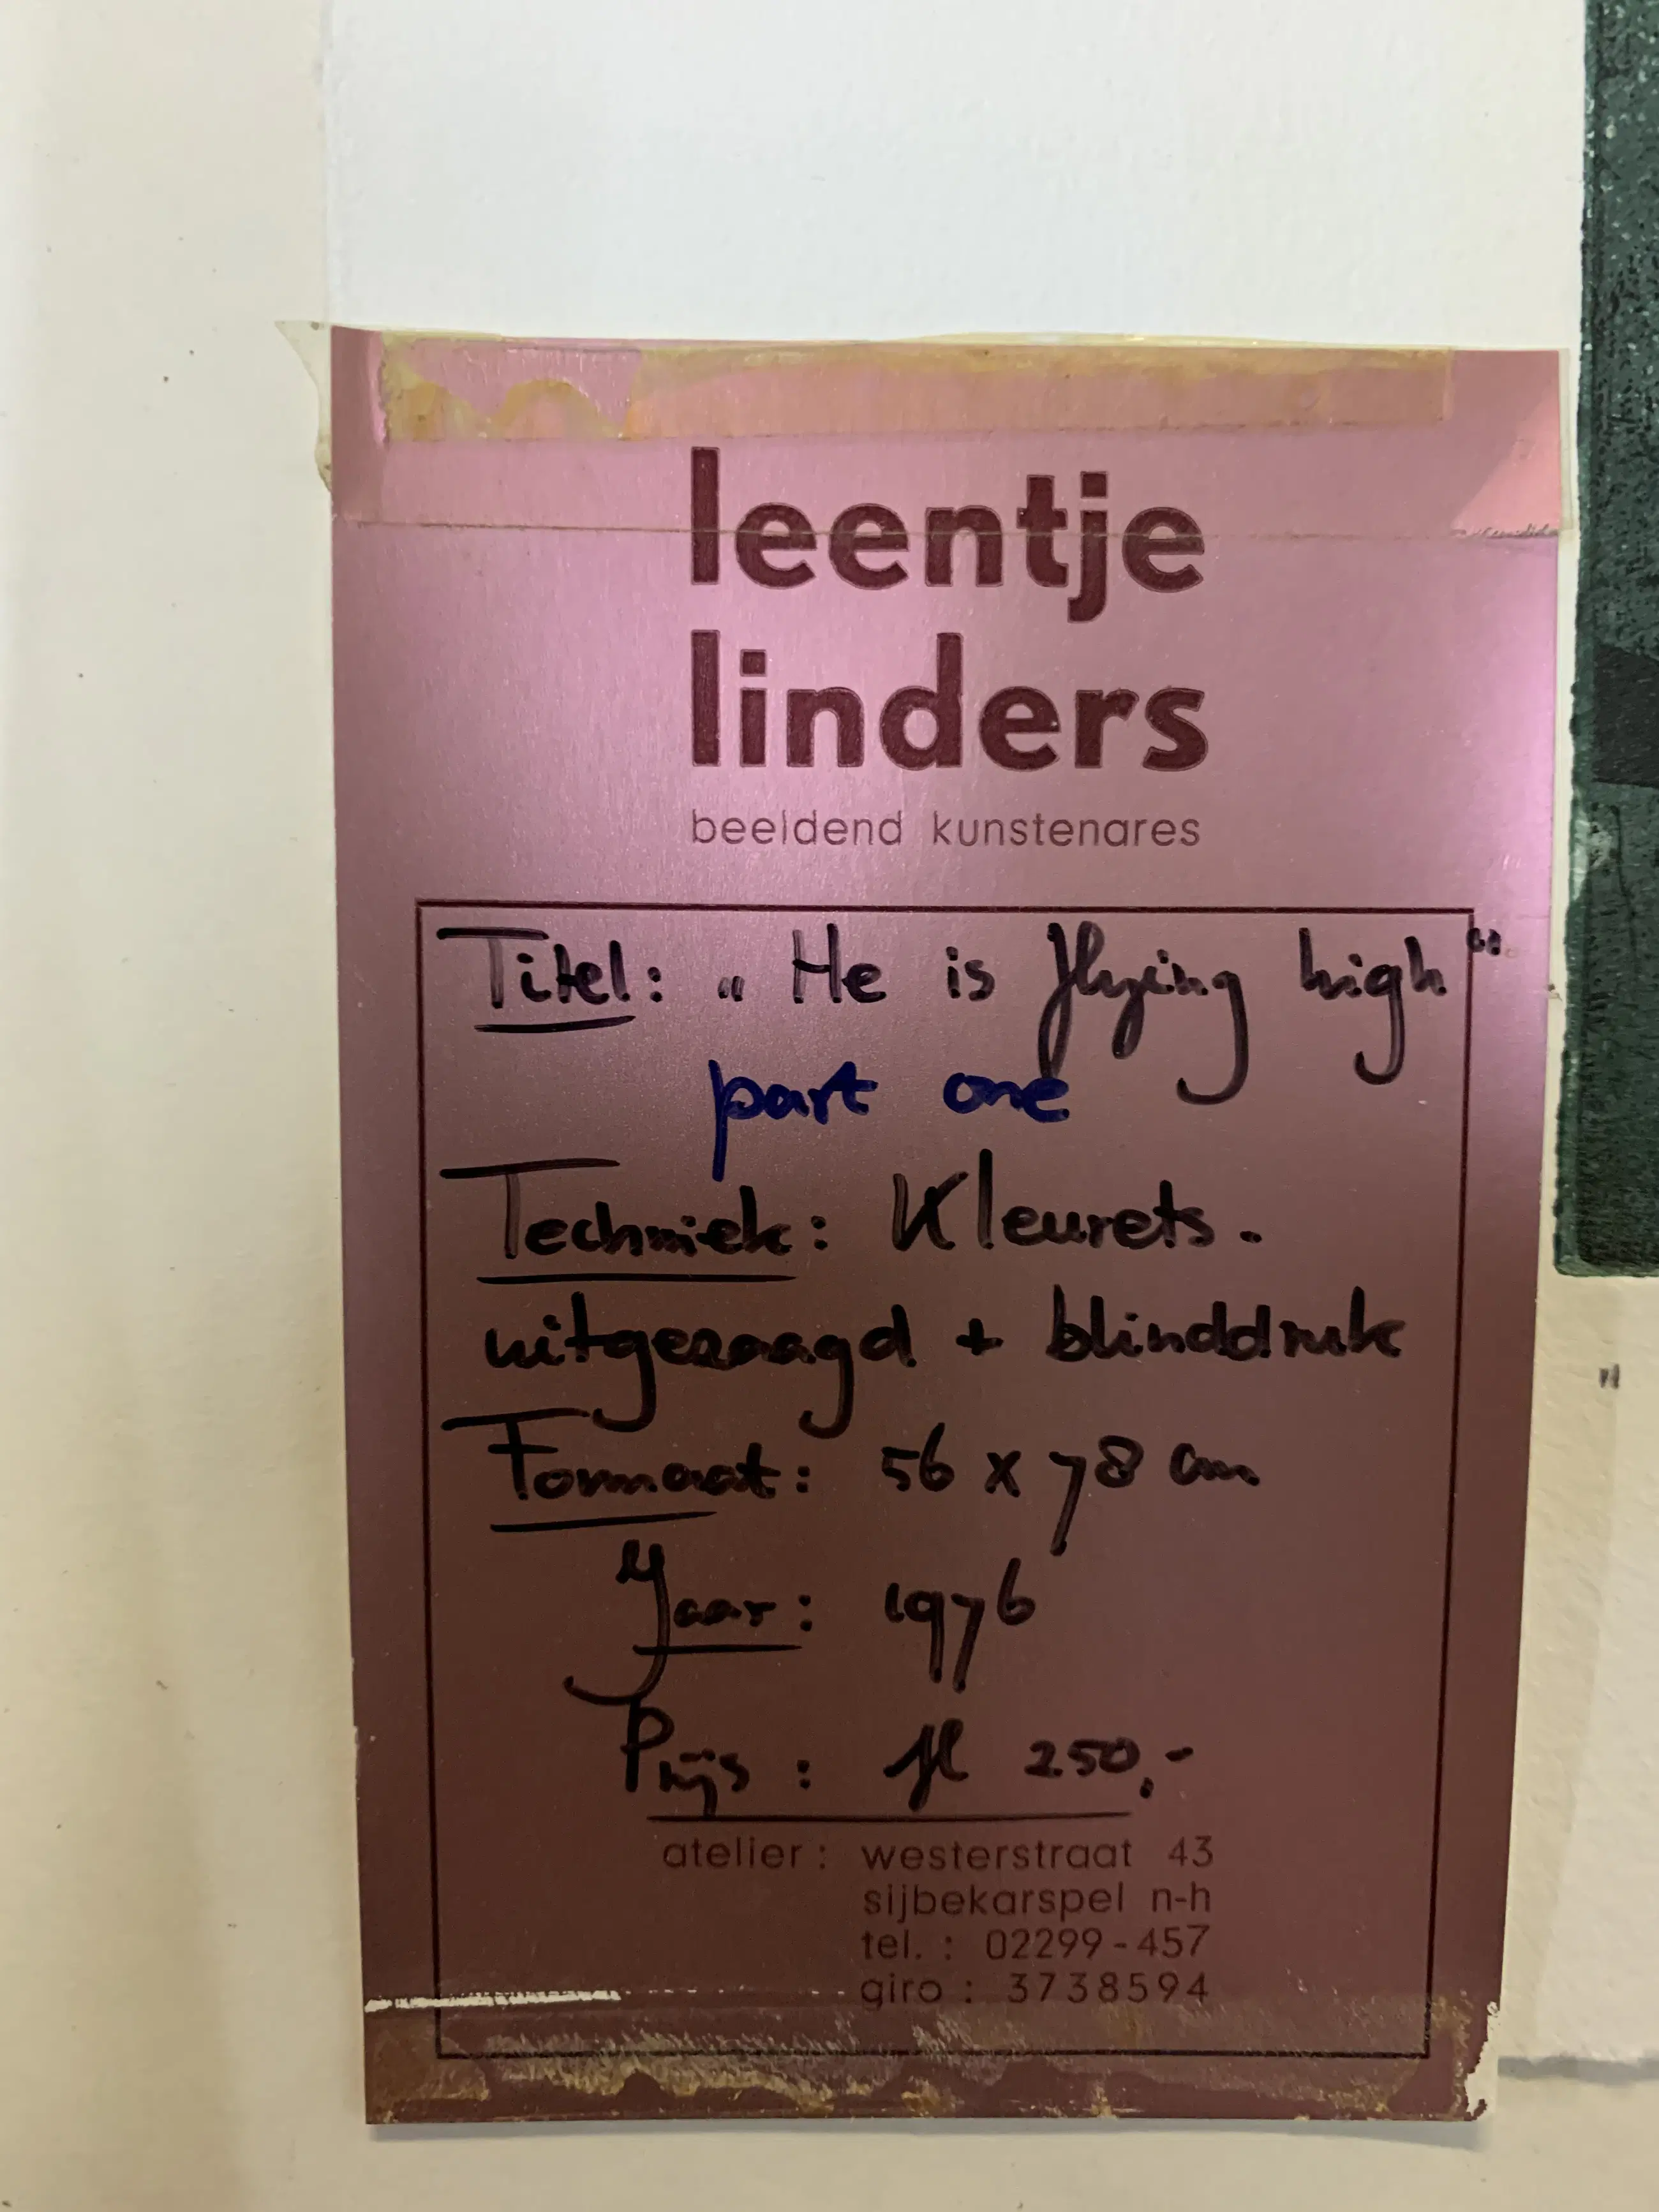 leentje
linders
beeldend kunstenares
Titel: „ He is flying high "
part one
Techniek: Kleurets.
uitgezaagd + blinddruk
Formaat: 56 x 78 cm
Jaar: 1976
Prijs: fl 250,-
atelier: westerstraat 43
sijbekarspel n-h
tel. : 02299-457
giro : 3738594